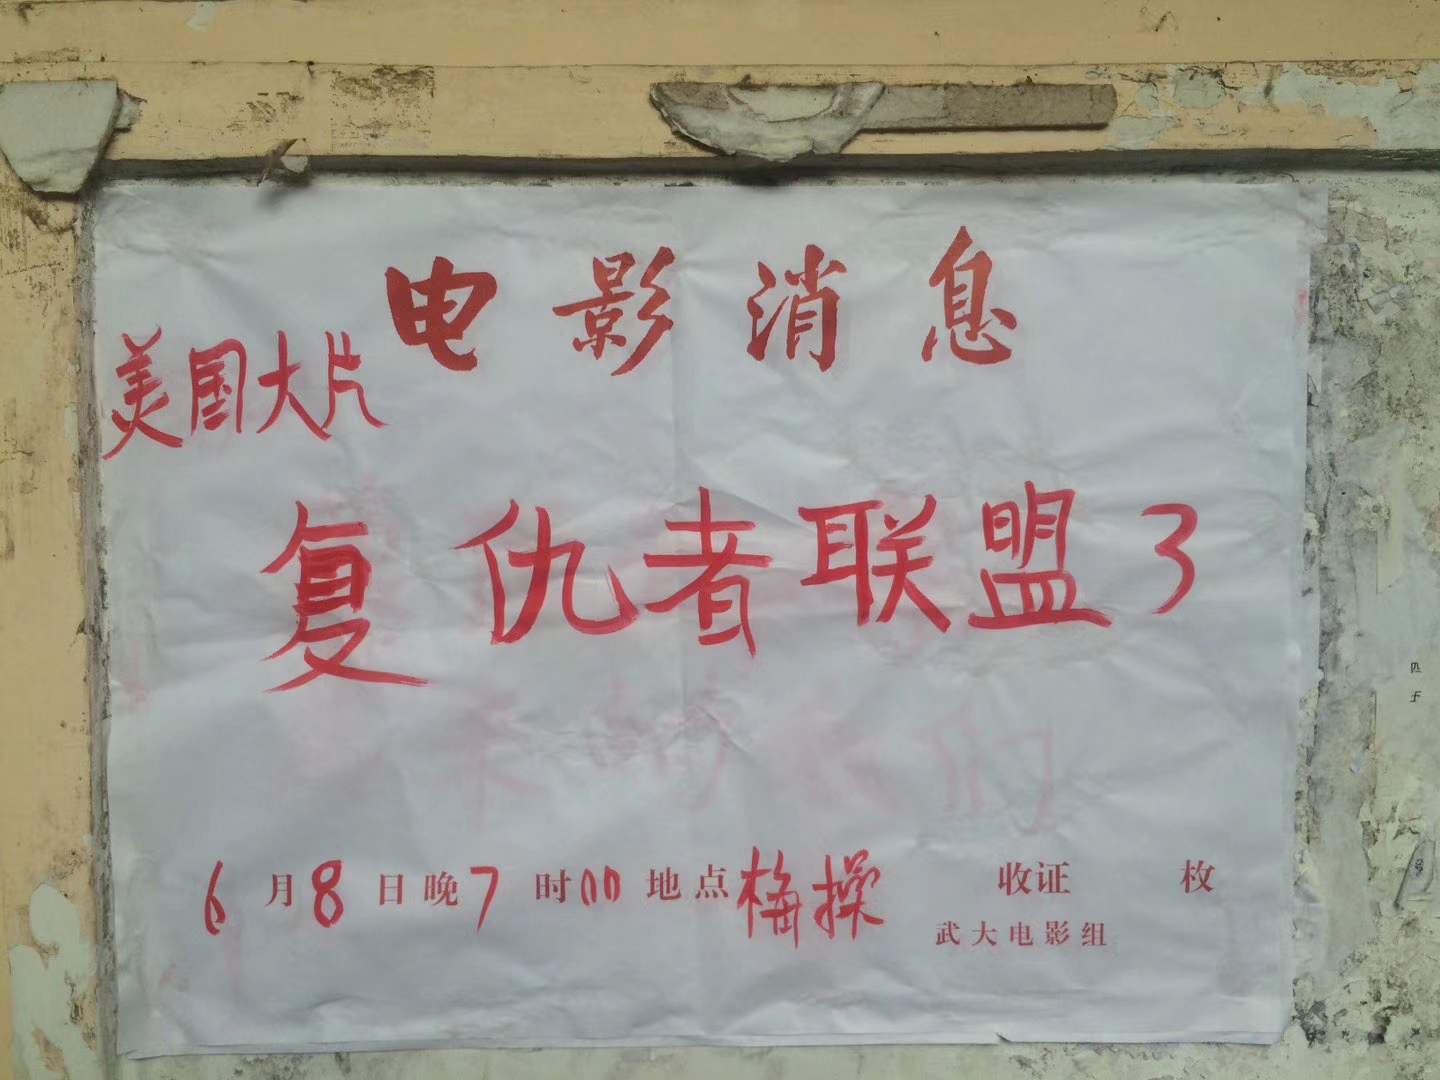 电影消息
美国大片
复仇者联盟3
6月8日晚7时00地点梅操 收证 枚
武大电影组